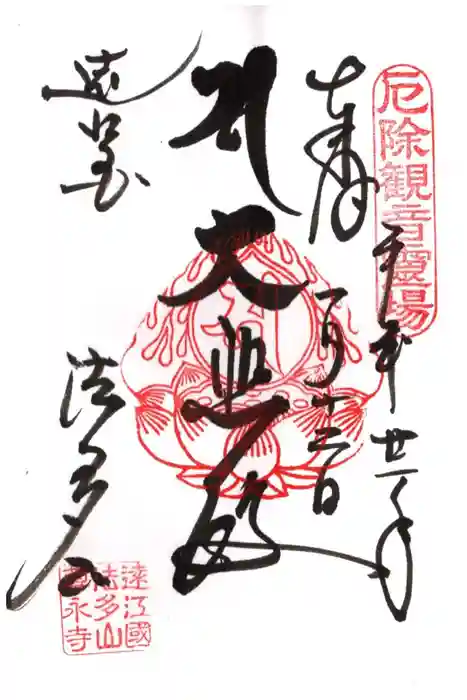 厄除観音靈場
奉拝
平成廿一年
一月 日
大悲殿
遠
法多山
遠江國
法多山
尊永寺